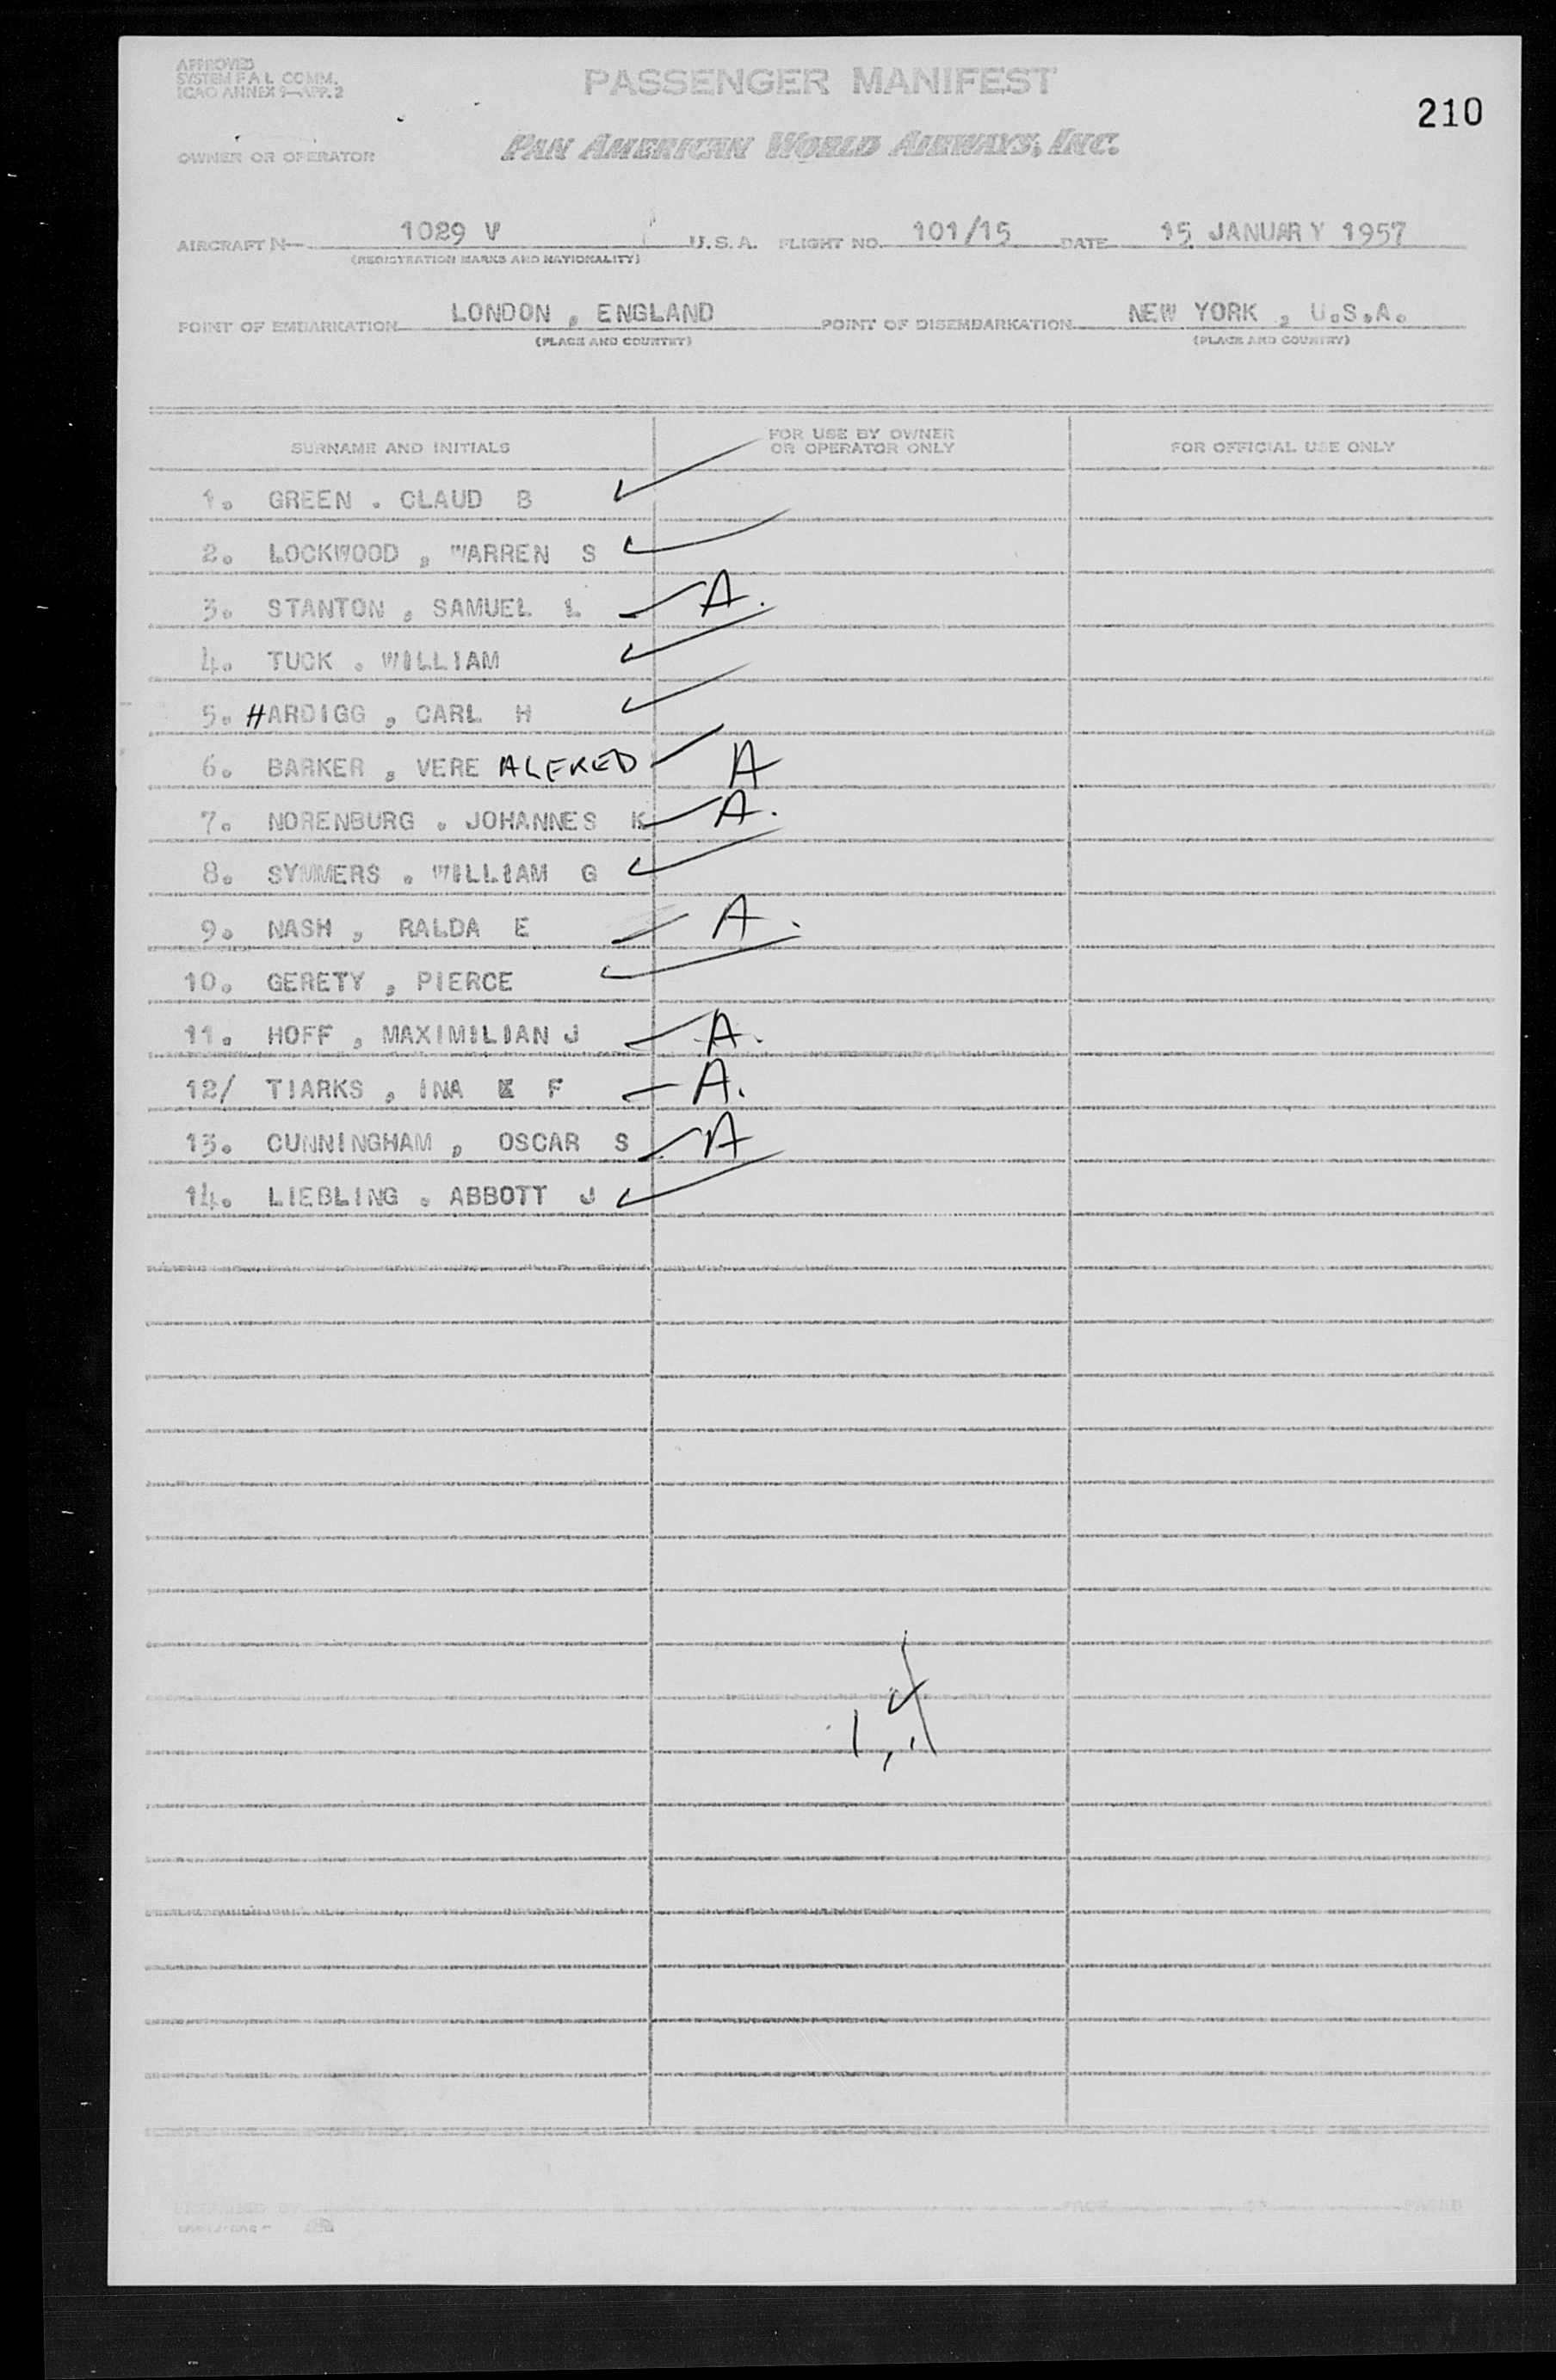 APPROVED
SYSTEM F A L COMM.
ICAO ANNEX 9—APP. 2
PASSENGER MANIFEST
210
OWNER OR OPERATOR
PAN AMERICAN WORLD AIRWAYS, INC.
AIRCRAFT N— 1029 V U.S.A. FLIGHT NO. 101/15 DATE 15 JANUARY 1957
(REGISTRATION MARKS AND NATIONALITY)
POINT OF EMBARKATION LONDON , ENGLAND POINT OF DISEMBARKATION NEW YORK , U.S.A.
(PLACE AND COUNTRY) (PLACE AND COUNTRY)
SURNAME AND INITIALS FOR USE BY OWNER OR OPERATOR ONLY FOR OFFICIAL USE ONLY
1. GREEN . CLAUD B ✓
2. LOCKWOOD , WARREN S ✓
3. STANTON , SAMUEL L A.
4. TUCK . WILLIAM ✓
5. HARDIGG , CARL H ✓
6. BARKER , VERE ALFRED A
7. NORENBURG . JOHANNES K A.
8. SYMMERS . WILLIAM G ✓
9. NASH , RALDA E A.
10. GERETY , PIERCE ✓
11. HOFF , MAXIMILIAN J A.
12/ TIARKS , INA F A.
13. CUNNINGHAM , OSCAR S A
14. LIEBLING . ABBOTT J ✓